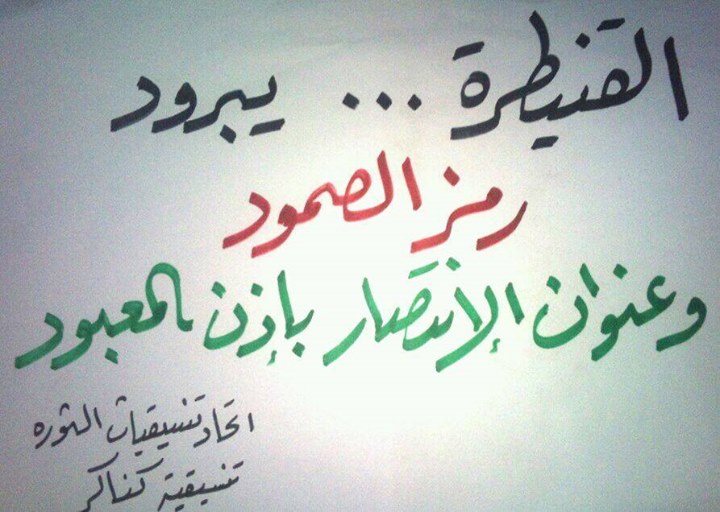 القنيطرة ... يبرود
رمز الصمود
وعنوان الإنتصار بإذن المعبود
اتحاد تنسيقيات الثوره
تنسيقية كناكر